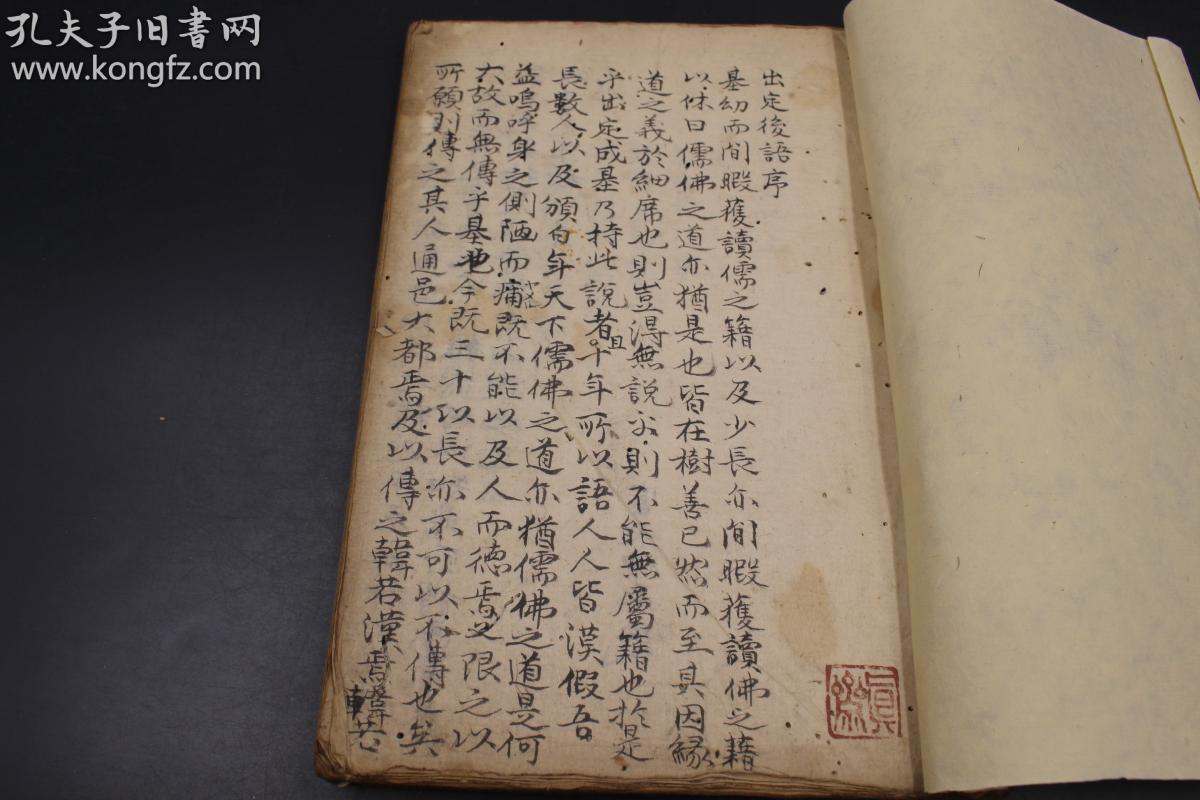 孔夫子旧书网
www.kongfz.com
出定後語序
基幼而閒暇獲讀儒之籍以及少長亦閒暇獲讀佛之籍
以休曰儒佛之道亦猶是也皆在樹善已然而至其因緣
道之義於細席也則豈得無說乎則不能無屬籍也於是
乎出定成基乃持此說者且十年所以語人人皆漠假吾
長數人以及頒白年天下儒佛之道亦猶儒佛之道是何
益嗚呼身之側陋而痡既不能以及人而徳焉又限之以
大故而無傳乎基也今既三十以長亦不可以不傳也矣
所願則傳之其人通邑大都焉及以傳之韓若漢焉韓若